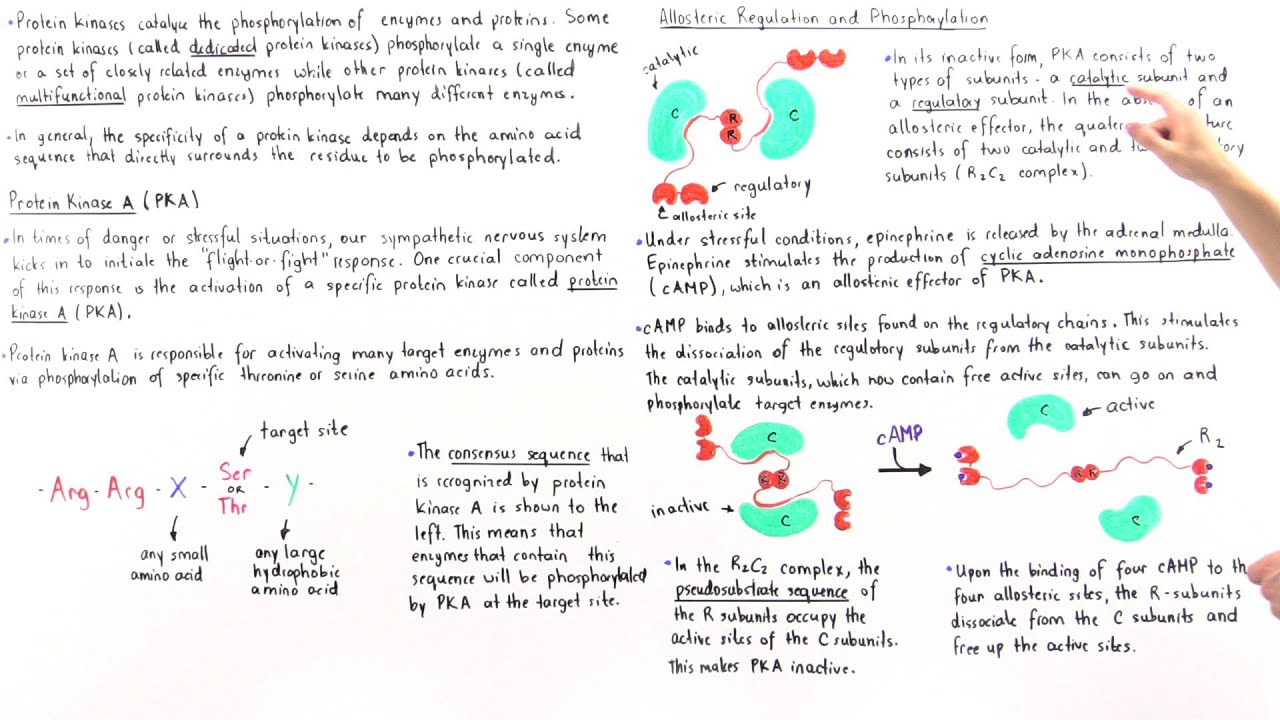 • Protein kinases catalyze the phosphorylation of enzymes and proteins. Some
protein kinases (called dedicated protein kinases) phosphorylate a single enzyme
or a set of closely related enzymes while other protein kinases (called
multifunctional protein kinases) phosphorylate many different enzymes.
• In general, the specificity of a protein kinase depends on the amino acid
sequence that directly surrounds the residue to be phosphorylated.
Protein Kinase A (PKA)
• In times of danger or stressful situations, our sympathetic nervous system
kicks in to initiate the "flight-or-fight" response. One crucial component
of this response is the activation of a specific protein kinase called protein
kinase A (PKA).
• Protein kinase A is responsible for activating many target enzymes and proteins
via phosphorylation of specific threonine or serine amino acids.
target site
- Arg - Arg - X - Ser OR Thr - Y -
any small
amino acid
any large
hydrophobic
amino acid
• The consensus sequence that
is recognized by protein
kinase A is shown to the
left. This means that
enzymes that contain this
sequence will be phosphorylated
by PKA at the target site.
Allosteric Regulation and Phosphorylation
catalytic
C
R
R
C
regulatory
allosteric site
• In its inactive form, PKA consists of two
types of subunits - a catalytic subunit and
a regulatory subunit. In the of an
allosteric effector, the
consists of two catalytic and
subunits (R2C2 complex).
• Under stressful conditions, epinephrine is released by the adrenal medulla.
Epinephrine stimulates the production of cyclic adenosine monophosphate
(cAMP), which is an allosteric effector of PKA.
• cAMP binds to allosteric sites found on the regulatory chains. This stimulates
the dissociation of the regulatory subunits from the catalytic subunits.
The catalytic subunits, which now contain free active sites, can go on and
phosphorylate target enzymes.
C
R R
C
inactive
cAMP
C
active
R2
R R
C
• In the R2C2 complex, the
pseudosubstrate sequence of
the R subunits occupy the
active sites of the C subunits.
This makes PKA inactive.
• Upon the binding of four cAMP to
four allosteric sites, the R-subunits
dissociate from the C subunits and
free up the active sites.